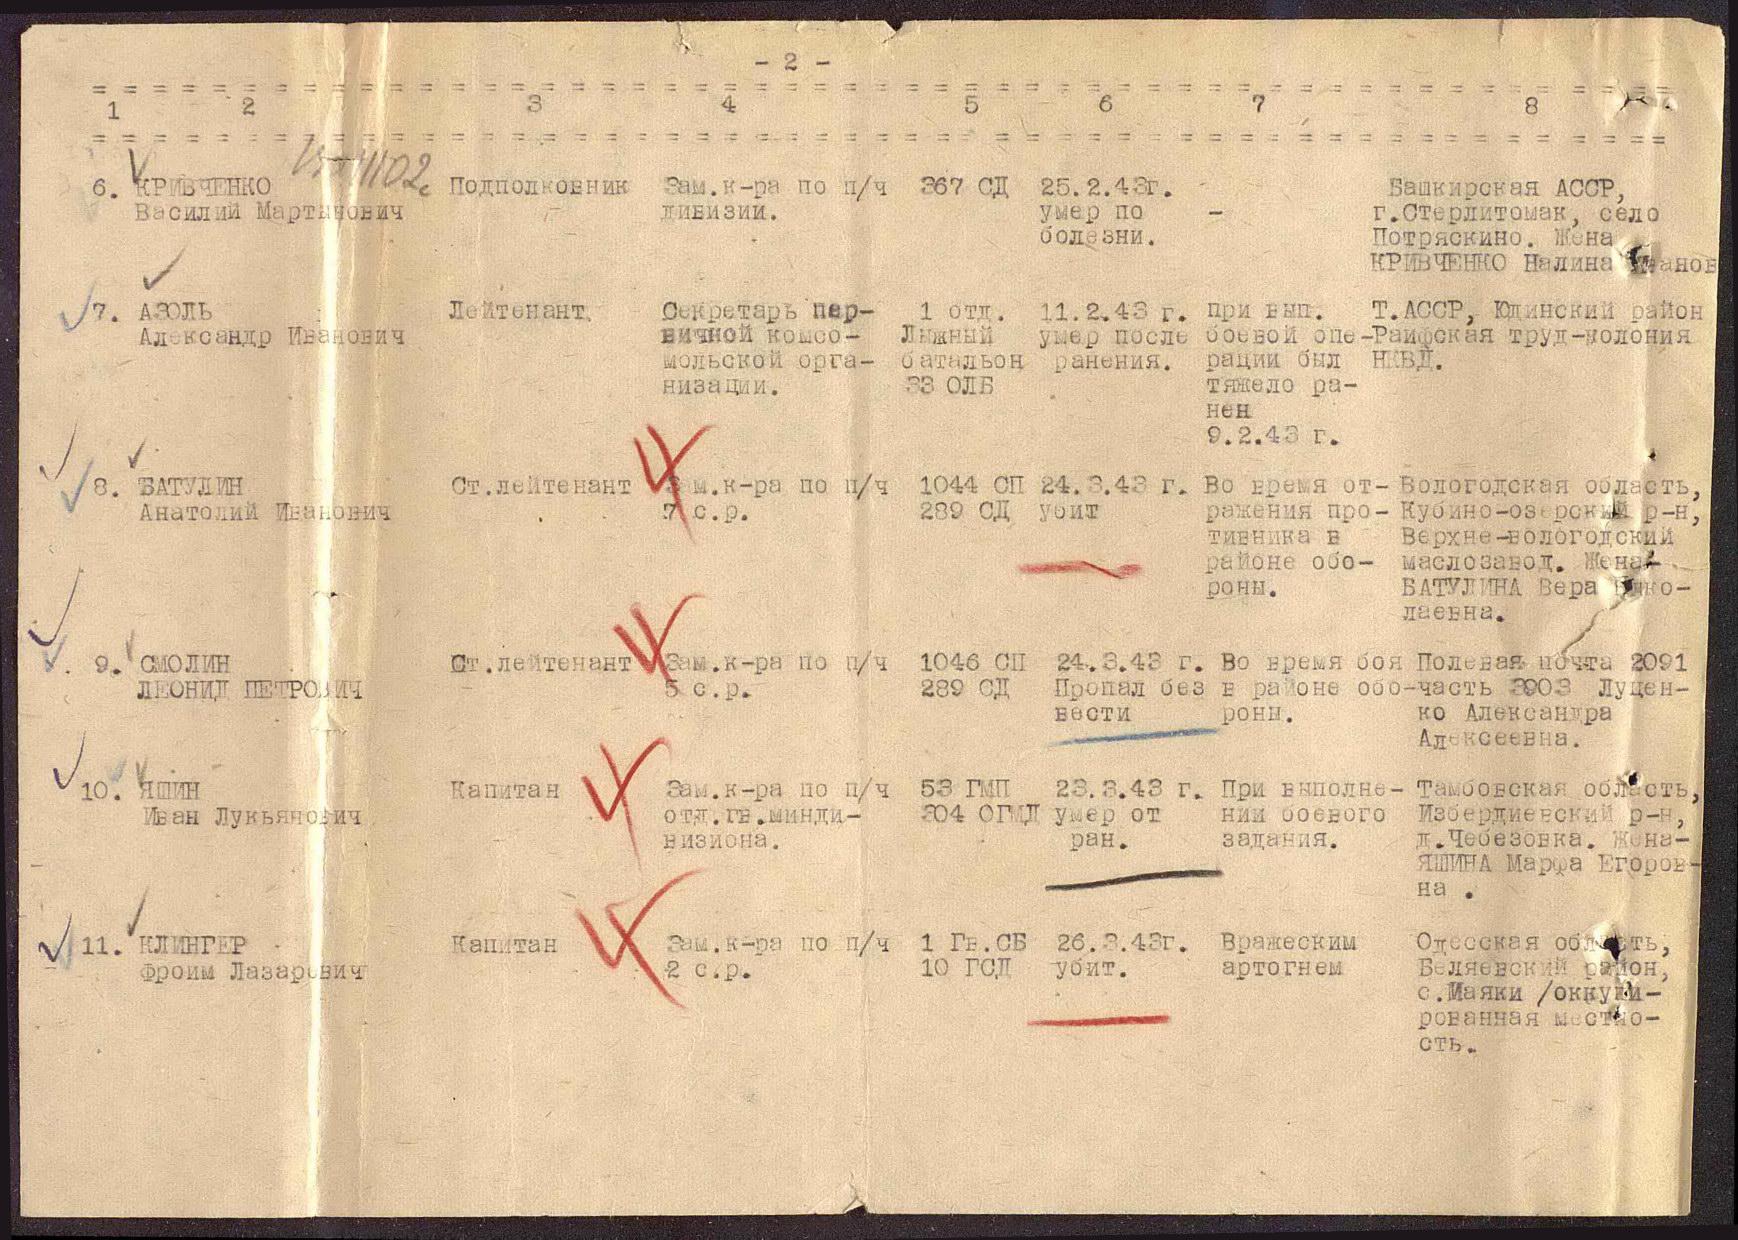 - 2 -
1 2 3 4 5 6 7 8
6. КРИВЧЕНКО Подполковник Зам.к-ра по п/ч 367 СД 25.2.43г. - Башкирская АССР,
Василий Мартынович дивизии. умер по - г.Стерлитомак, село
болезни. Потряскино. Жена
КРИВЧЕНКО Налина Иванов
7. АЗОЛЬ Лейтенант. Секретарь пер- 1 отд. 11.2.43 г. при вып. Т.АССР, Юдинский район
Александр Иванович вичной комсо- Лыжный умер после боевой опе- Раифская труд-колония
мольской орга- батальон ранения. рации был НКВД.
низации. 33 ОЛБ тяжело ра-
нен
9.2.43 г.
8. БАТУЛИН Ст.лейтенант Зам.к-ра по п/ч 1044 СП 24.3.43 г. Во время от- Вологодская область,
Анатолий Иванович 7 с.р. 289 СД убит ражения про- Кубино-озерский р-н,
тивника в Верхне-вологодский
районе обо- маслозавод. Жена-
роны. БАТУЛИНА Вера Нико-
лаевна.
9. СМОЛИН Ст.лейтенант Зам.к-ра по п/ч 1046 СП 24.3.43 г. Во время боя Полевая почта 2091
ЛЕОНИД ПЕТРОВИЧ 5 с.р. 289 СД Пропал без в районе обо- часть 3903 Луцен-
вести роны. ко Александра
Алексеевна.
10. ЯШИН Капитан Зам.к-ра по п/ч 53 ГМП 23.3.43 г. При выполне- Тамбовская область,
Иван Лукьянович отд.гв.минди- 304 ОГМД умер от нии боевого Избердиевский р-н,
визиона. ран. задания. д.Чебезовка. Жена-
ЯШИНА Марфа Егоров-
на .
11. КЛИНГЕР Капитан Зам.к-ра по п/ч 1 Гв.СБ 26.3.43г. Вражеским Одесская область,
Фроим Лазаревич 2 с.р. 10 ГСД убит. артогнем Беляевский район,
с.Маяки /оккупи-
рованная местно-
сть.